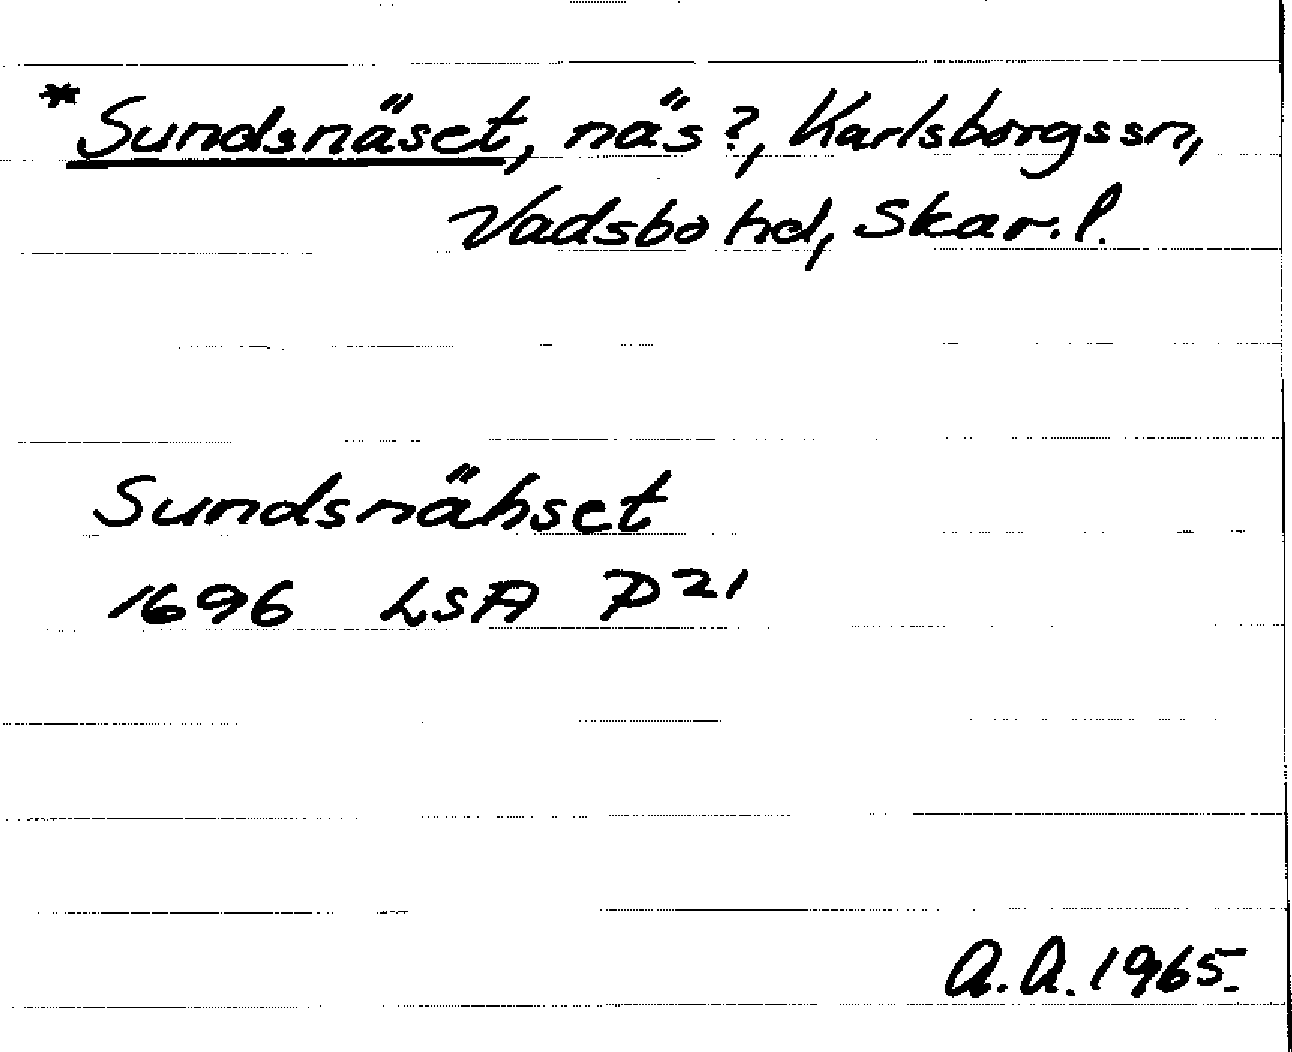 *Sundsnäset, näs?, Karlsborgssn,
Vadsbo hd, Skar. l.
Sundsnähset
1696 LSA P21
A.A. 1965.